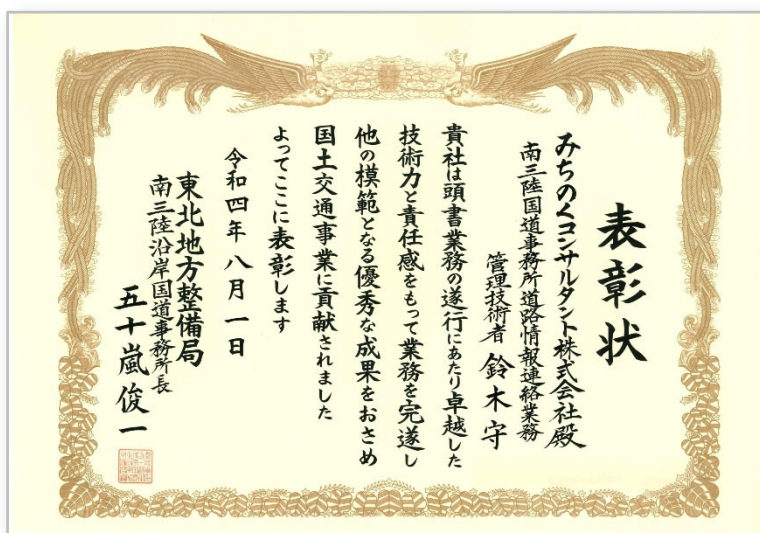 表彰状
みちのくコンサルタント株式会社殿
南三陸国道事務所道路情報連絡業務
管理技術者 鈴木守
貴社は頭書業務の遂行にあたり卓越した
技術力と責任感をもって業務を完遂し
他の模範となる優秀な成果をおさめ
国土交通事業に貢献されました
よってここに表彰します
令和四年八月一日
東北地方整備局
南三陸沿岸国道事務所長
五十嵐俊一